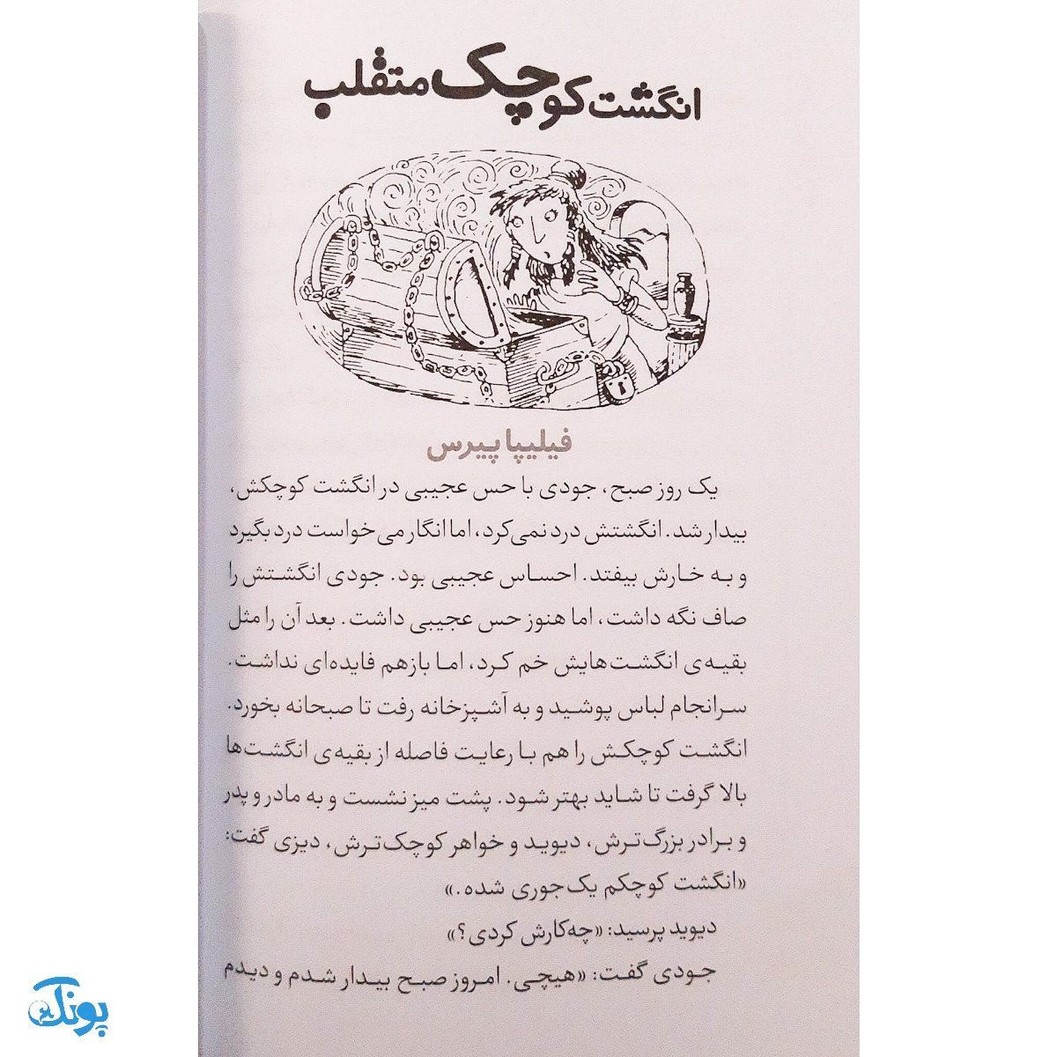 انگشت کوچک متقلب
فیلیپا پیرس
یک روز صبح، جودی با حس عجیبی در انگشت کوچکش،
بیدار شد. انگشتش درد نمی‌کرد، اما انگار می‌خواست درد بگیرد
و به خارش بیفتد. احساس عجیبی بود. جودی انگشتش را
صاف نگه داشت، اما هنوز حس عجیبی داشت. بعد آن را مثل
بقیه‌ی انگشت‌هایش خم کرد، اما بازهم فایده‌ای نداشت.
سرانجام لباس پوشید و به آشپزخانه رفت تا صبحانه بخورد.
انگشت کوچکش را هم با رعایت فاصله از بقیه‌ی انگشت‌ها
بالا گرفت تا شاید بهتر شود. پشت میز نشست و به مادر و پدر
و برادر بزرگ‌ترش، دیوید و خواهر کوچک‌ترش، دیزی گفت:
«انگشت کوچکم یک‌جوری شده.»
دیوید پرسید: «چه‌کارش کردی؟»
جودی گفت: «هیچی. امروز صبح بیدار شدم و دیدم
پونک